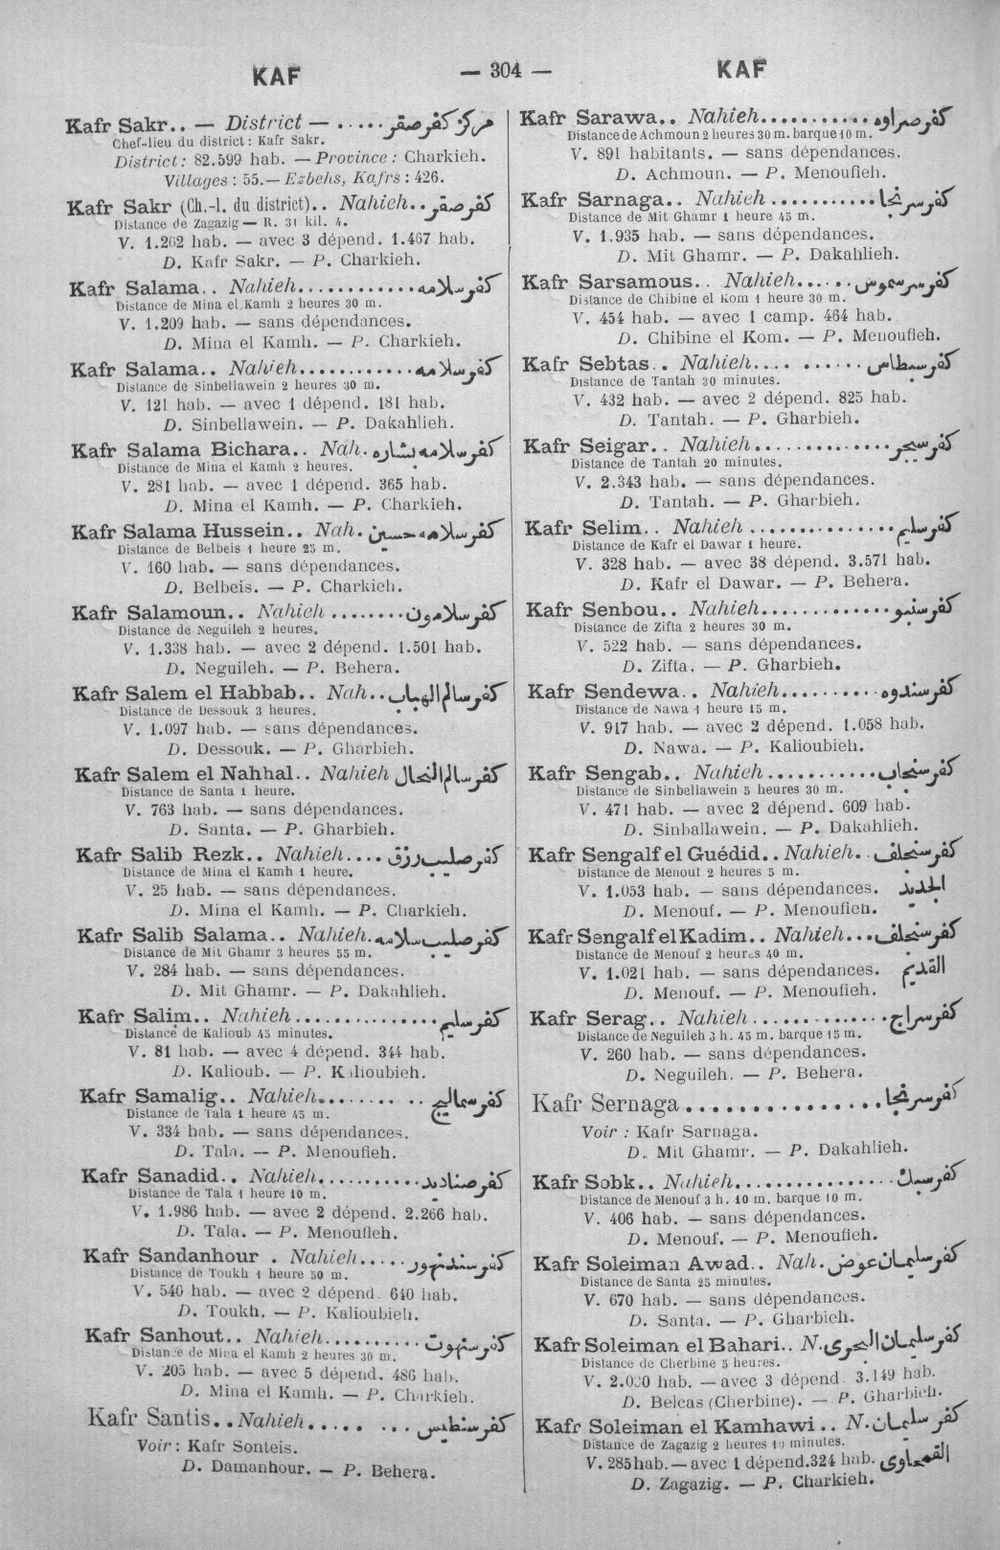 KAF
— 304 —
KAF
Kafr Sakr.. — District — ..... مركز كفر صقر
Chef-lieu du district : Kafr Sakr.
District : 82.599 hab. — Province : Charkieh.
Villages : 55. — Ezbehs, Kafrs : 426.
Kafr Sakr (Ch.-l. du district).. Nahieh.. كفر صقر
Distance de Zagazig — R. 31 kil. 4.
V. 1.262 hab. — avec 3 dépend. 1.467 hab.
D. Kafr Sakr. — P. Charkieh.
Kafr Salama.. Nahieh............ كفر سلامه
Distance de Mina el Kamh 2 heures 30 m.
V. 1.209 hab. — sans dépendances.
D. Mina el Kamh. — P. Charkieh.
Kafr Salama.. Nahieh............ كفر سلامه
Distance de Sinbellawein 2 heures 30 m.
V. 121 hab. — avec 1 dépend. 181 hab.
D. Sinbellawein. — P. Dakahlieh.
Kafr Salama Bichara.. Nah. كفر سلامه بشاره
Distance de Mina el Kamh 2 heures.
V. 281 hab. — avec 1 dépend. 365 hab.
D. Mina el Kamh. — P. Charkieh.
Kafr Salama Hussein.. Nah. كفر سلامه حسين
Distance de Belbeis 1 heure 25 m.
V. 160 hab. — sans dépendances.
D. Belbeis. — P. Charkieh.
Kafr Salamoun.. Nahieh ........ كفر سلامون
Distance de Neguileh 2 heures.
V. 1.338 hab. — avec 2 dépend. 1.501 hab.
D. Neguileh. — P. Behera.
Kafr Salem el Habbab.. Nah.. كفر سالم الهباب
Distance de Dessouk 3 heures.
V. 1.097 hab. — sans dépendances.
D. Dessouk. — P. Gharbieh.
Kafr Salem el Nahhal.. Nahieh كفر سالم النحال
Distance de Santa 1 heure.
V. 763 hab. — sans dépendances.
D. Santa. — P. Gharbieh.
Kafr Salib Rezk.. Nahieh.... كفر صليب رزق
Distance de Mina el Kamh 1 heure.
V. 25 hab. — sans dépendances.
D. Mina el Kamh. — P. Charkieh.
Kafr Salib Salama.. Nahieh. كفر صليب سلامه
Distance de Mit Ghamr 3 heures 55 m.
V. 284 hab. — sans dépendances.
D. Mit Ghamr. — P. Dakahlieh.
Kafr Salim.. Nahieh .............. كفر سليم
Distance de Kalioub 45 minutes.
V. 81 hab. — avec 4 dépend. 344 hab.
D. Kalioub. — P. Kalioubieh.
Kafr Samalig.. Nahieh........ .. كفر سماليج
Distance de Tala 1 heure 45 m.
V. 334 hab. — sans dépendances.
D. Tala. — P. Menoufieh.
Kafr Sanadid.. Nahieh.......... كفر صناديد
Distance de Tala 1 heure 10 m.
V. 1.986 hab. — avec 2 dépend. 2.266 hab.
D. Tala. — P. Menoufieh.
Kafr Sandanhour . Nahieh..... كفر سندنهور
Distance de Toukh 1 heure 50 m.
V. 540 hab. — avec 2 dépend. 640 hab.
D. Toukh. — P. Kalioubieh.
Kafr Sanhout.. Nahieh.......... كفر سنهوت
Distance de Mina el Kamh 2 heures 30 m.
V. 205 hab. — avec 5 dépend. 486 hab.
D. Mina el Kamh. — P. Charkieh.
Kafr Santis.. Nahieh..... ... كفر سنطيس
Voir : Kafr Sonteis.
D. Damanhour. — P. Behera.
Kafr Sarawa.. Nahieh........... كفر صراوه
Distance de Achmoun 2 heures 30 m. barque 10 m.
V. 891 habitants. — sans dépendances.
D. Achmoun. — P. Menoufieh.
Kafr Sarnaga.. Nahieh .......... كفر سرنجا
Distance de Mit Ghamr 1 heure 45 m.
V. 1.935 hab. — sans dépendances.
D. Mit Ghamr. — P. Dakahlieh.
Kafr Sarsamous.. Nahieh...... كفر سرسموس
Distance de Chibine el Kom 1 heure 30 m.
V. 454 hab. — avec 1 camp. 464 hab.
D. Chibine el Kom. — P. Menoufieh.
Kafr Sebtas.. Nahieh.... ...... كفر سبطاس
Distance de Tantah 30 minutes.
V. 432 hab. — avec 2 dépend. 825 hab.
D. Tantah. — P. Gharbieh.
Kafr Seigar.. Nahieh............. كفر سيجر
Distance de Tantah 20 minutes.
V. 2.343 hab. — sans dépendances.
D. Tantah. — P. Gharbieh.
Kafr Selim.. Nahieh .............. كفر سليم
Distance de Kafr el Dawar 1 heure.
V. 328 hab. — avec 38 dépend. 3.571 hab.
D. Kafr el Dawar. — P. Behera.
Kafr Senbou.. Nahieh............. كفر سنبو
Distance de Zifta 2 heures 30 m.
V. 522 hab. — sans dépendances.
D. Zifta. — P. Gharbieh.
Kafr Sendewa.. Nahieh.......... كفر سندوه
Distance de Nawa 1 heure 15 m.
V. 917 hab. — avec 2 dépend. 1.058 hab.
D. Nawa. — P. Kalioubieh.
Kafr Sengab.. Nahieh........... كفر سنجاب
Distance de Sinbellawein 5 heures 30 m.
V. 471 hab. — avec 2 dépend. 609 hab.
D. Sinballawein. — P. Dakahlieh.
Kafr Sengalf el Guédid.. Nahieh.. كفر سنجلف
Distance de Menouf 2 heures 5 m.
V. 1.053 hab. — sans dépendances. الجديد
D. Menouf. — P. Menoufieh.
Kafr Sengalf el Kadim.. Nahieh... كفر سنجلف
Distance de Menouf 2 heures 40 m.
V. 1.021 hab. — sans dépendances. القديم
D. Menouf. — P. Menoufieh.
Kafr Serag.. Nahieh ............. كفر سراج
Distance de Neguileh 3 h. 45 m. barque 15 m.
V. 260 hab. — sans dépendances.
D. Neguileh. — P. Behera.
Kafr Sernaga ............... كفر سرنجا
Voir : Kafr Sarnaga.
D. Mit Ghamr. — P. Dakahlieh.
Kafr Sobk.. Nahieh............... كفر سبك
Distance de Menouf 3 h. 10 m. barque 10 m.
V. 406 hab. — sans dépendances.
D. Menouf. — P. Menoufieh.
Kafr Soleiman Awad.. Nah. كفر سليمان عوض
Distance de Santa 25 minutes.
V. 670 hab. — sans dépendances.
D. Santa. — P. Gharbieh.
Kafr Soleiman el Bahari.. N. كفر سليمان البحرى
Distance de Cherbine 5 heures.
V. 2.000 hab. — avec 3 dépend 3.149 hab.
D. Belcas (Cherbine). — P. Gharbieh.
Kafr Soleiman el Kamhawi .. N. كفر سليمان
Distance de Zagazig 2 heures minutes.
V. 285 hab. — avec 1 dépend. 324 hab. القمحاوى
D. Zagazig. — P. Charkieh.